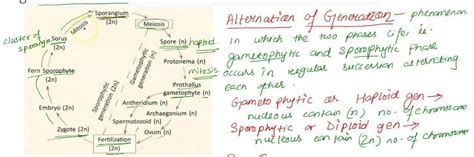 Sporangium
(2n)
Mitosis
Meiosis
cluster of
sporangia
Sorus
(2n)
Spore (n) haploid
Protonema (n)
mitosis
Fern Sporophyte
(2n)
Sporophytic
generation (2n)
Gametophytic
generation (n)
Prothallus
gametophyte (n)
Embryo (2n)
Antheridium
Archaegonium (n)
Spermatozooid (n)
Ovum (n)
Zygote (2n)
Fertilization
(2n)
Alternation of Generation - phenomenon
in which the two phases life, ie:
gametophytic and sporophytic phase
occurs in regular succession alternating
each other.
Gametophytic or Haploid gen →
nucleous contain (n) no. of chromosome
Sporophytic or Diploid gen →
nucleous contain (2n) no. of chromosome